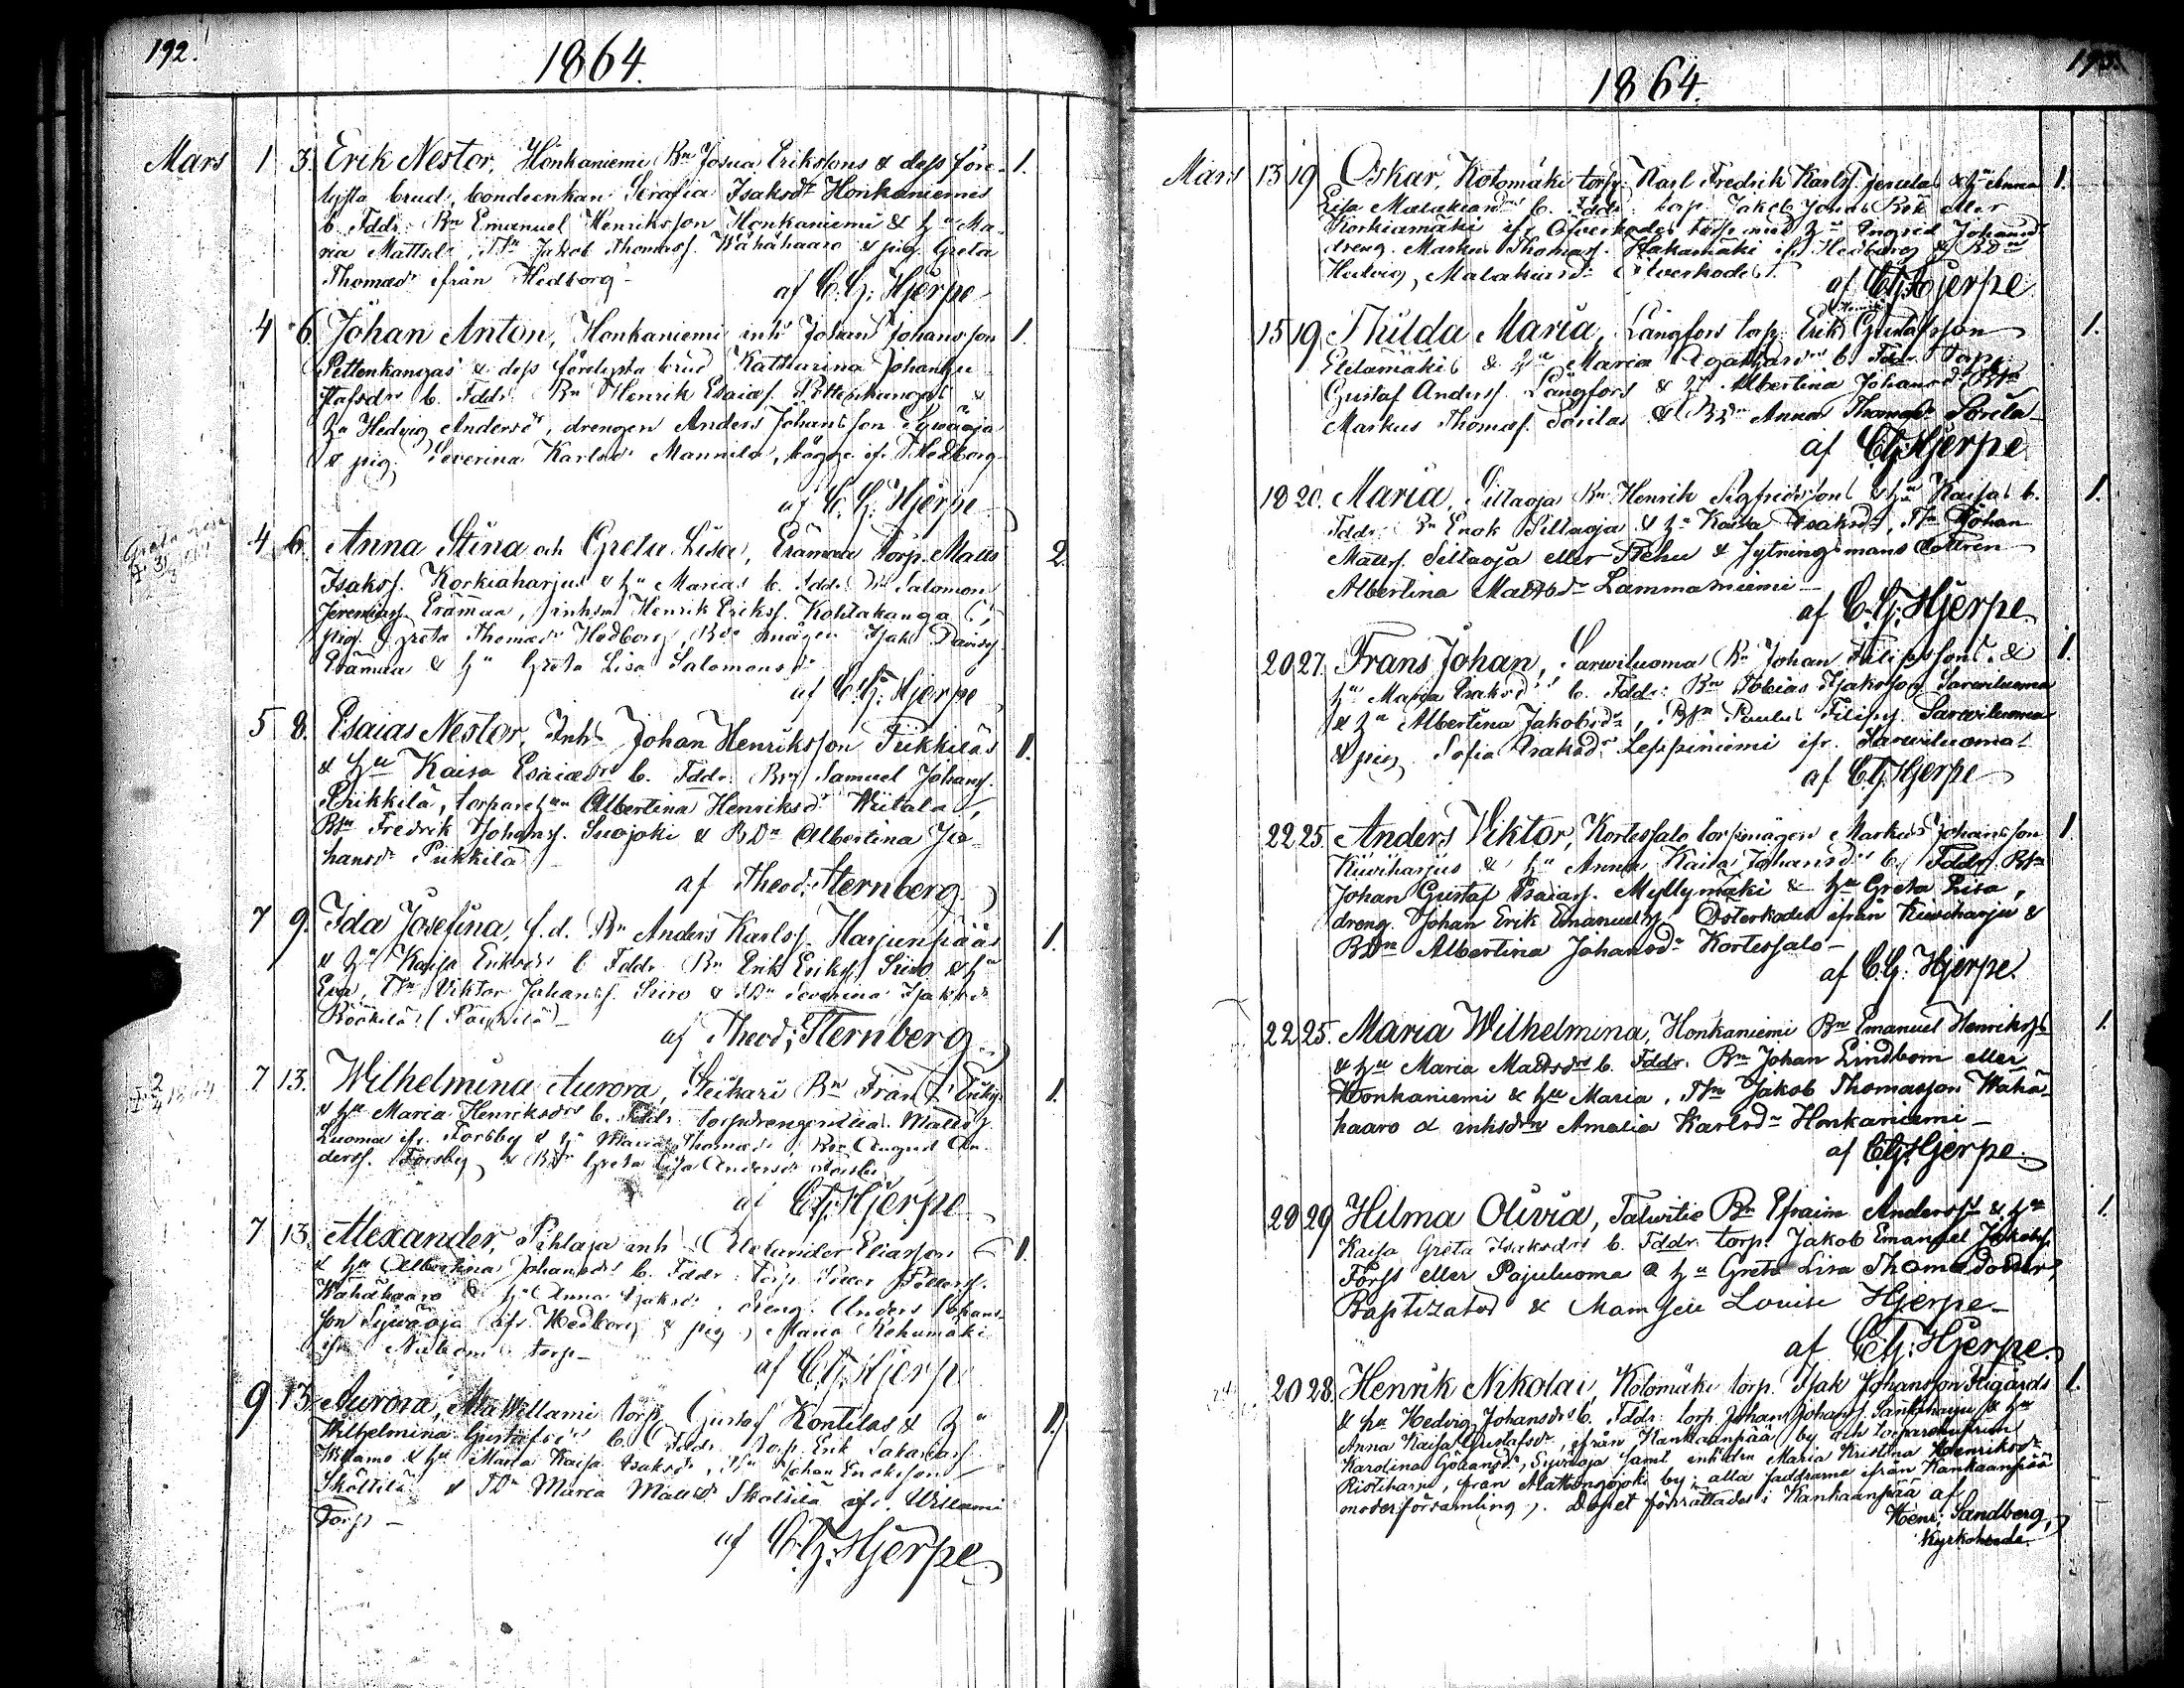 192.
1864.
Mars 1 3. Erik Nestor, Honkaniemi Bn Josua Erikssons & dess före- 1.
lysta brud, bondeenkan Serafia Isaksdr Honkaniemis
b. Fddr: Bn Emanuel Henriksson Honkaniemi & hu Ma-
ria Mattsdr, Jakob Thomass. Wähähaaro & pig. Greta
Thomasdr ifrån Hedborg-
af C. G. Hjerpe
4 6. Johan Anton, Honkaniemi inhs Johan Johansson 1.
Pettenkangas & dess förelysta brud Katharina Johan Gu-
stafsdrs b. Fddr. Bn Henrik Esaiass. Pettenkangas &
hu Hedvig Andersdr, drengen Anders Johansson Sywäoja
& pig. Severina Karlsdr Mannila, bägge ifr. Hedborg
af C. G. Hjerpe
4 6. Anna Stina och Greta Lisa, Erämaa Torp. Matts 2.
Isakss. Korkiaharjus & hu Marias b. Fddr. Salomon
Jeremiass. Erämaa, inhsn Henrik Erikss. Kohtakanga
pig. Greta Thomasdr Hedborg, mågen Isak Davidss.
Erämaa & hu Greta Lisa Salomonsdr
af C. G. Hjerpe
5 8. Esaias Nestor, Inhs Johan Henriksson Pukkiläs 1.
& hu Kaisa Esaiædrs b. Fddr: Bn Samuel Johanss.
Pukkilä, torparehun Albertina Henriksdr Wiitala,
Bsn Fredrik Johanss. Suojoki & BDn Albertina Jo-
hansdr Pukkilä
af Theod: Sternberg
7 9. Ida Josefina, f.d. Bn Anders Karlss. Harjunpääs 1.
& hu Kaisa Eriksdrs b. Fddr. Bn Erik Erikss. & hu
Eva, Viktor Johanss. & Severina Isaksdr
af Theod: Sternberg
7 13. Wilhelmina Aurora, Bn Frans 1.
& hu Maria Henriksdrs b. Fddr: torpdrengen Matts
Luoma ifr. Forsby & hu Maria Thomasdr, Bsn August An-
derss. Forsby & BDr Greta Lisa Andersdr
af C. G. Hjerpe
7 13. Alexander, Pihlaja inh. Alexander Eliasson 1.
& hu Albertina Johansdrs b. Fddr: torp.
Wähähaaro & hu Anna Isaksdr, dreng. Anders Johans-
son Sywäoja ifr. Hedborg & pig. Maria
ifr. torp-
af C. G. Hjerpe
9 13. Aurora, Willami torp. Gustaf Kontilas & hu 1.
Wilhelmina Gustafsdrs b. Fddr. torp. Erik Sakariass.
Willamo & hu Maria Kaisa Isaksdr, Johan Enoksson
Skåttilä & Maria Mattsdr Skåttilä ifr. Willami
Torp -
af C. G. Hjerpe
1864.
Mars 13 19 Oskar, Kotomäki torp. Karl Fredrik Karlss. & hu Anna 1.
Lisa Malakiasdrs b. Fddr: torp. Jakob Jonas eller
Korkiamäki ifr. torp med hu Ingrid Johansdr
dreng. Markus Thomass. Hakamäki ifr. Hedborg & BDn
Hedvig Malakiasdr
af C. G. Hjerpe
15 19. Thilda Maria, Långfors torp. Erik Gustafsson 1.
Etelämäkis & hu Maria b. Fddr. Torp.
Gustaf Anderss. Långfors & hu Albertina Johansdr, Bsn
Markus Thomass. Sorila & BDn Anna Thomasdr Sorila
af C. G. Hjerpe
18 20. Maria, Sillaoja Bn Henrik Sigfridssons & hu Kaisas b. 1.
Fddr: Bn Enok Sillaoja & hu Kaisa Isaksdr, Johan
Mattss. Sillaoja eller & Jytningsmans dottren
Albertina Mattsdr Lammasniemi
af C. G. Hjerpe.
20 27. Frans Johan, Sarwiluoma Bn Johan Filipssons & 1.
hu Maria Isaksdrs b. Fddr: Bn Tobias Isaksson Sarwiluoma
& hu Albertina Jakobsdr, Bsn Paulus Filipss. Sarwiluoma
& pig. Sofia Isaksdr Leppiniemi ifr. Sarwiluoma
af C. G. Hjerpe
22 25. Anders Viktor, Kortessalo torpmågen Markus Johansson 1.
Kiwiharjus & hu Anna Kaisa Johansdrs b. Fddr. Bsn
Johan Gustaf Esaiass. Myllymäki & hu Greta Lisa,
dreng. Johan Erik Emanuelss. ifrån Kiwiharju &
BDn Albertina Johansdr Kortessalo-
af C. G. Hjerpe.
22 25. Maria Wilhelmina, Honkaniemi Bn Emanuel Henrikss 1.
& hu Maria Mattsdrs b. Fddr. Bn Johan Lindbom eller
Honkaniemi & hu Maria, Jakob Thomasson Wähä-
haaro & inhsdn Amalia Karlsdr Honkaniemi -
af C. G. Hjerpe
28 29 Hilma Olivia, Talwitie Bn Efraim Anderss. & hu 1.
Kaisa Greta Isaksdrs b. Fddr. torp. Jakob Emanuel Jakobss.
Forss eller Pajuluoma & hu Greta Lisa Thomædotter,
Baptizator & Mamsell Louise Hjerpe-
af C. G. Hjerpe.
20 28. Henrik Nikolai, Kotomäki torp. Isak Johansson 1.
& hu Hedvig Johansdrs b. Fddr: torp. Johan Johanss. & hu
Anna Kaisa Gustafsdr, ifrån Kankaanpää by och torparehustrun
Karolina Göransdr, Sywäoja samt enkedn Maria Kristina Henriksdr
Ristiharju, från by; alla faddrarne ifrån Kankaanpää
moderförsamling. Dopet förrättades i Kankaanpää af
Henr: Sandberg,
Kyrkoherde.